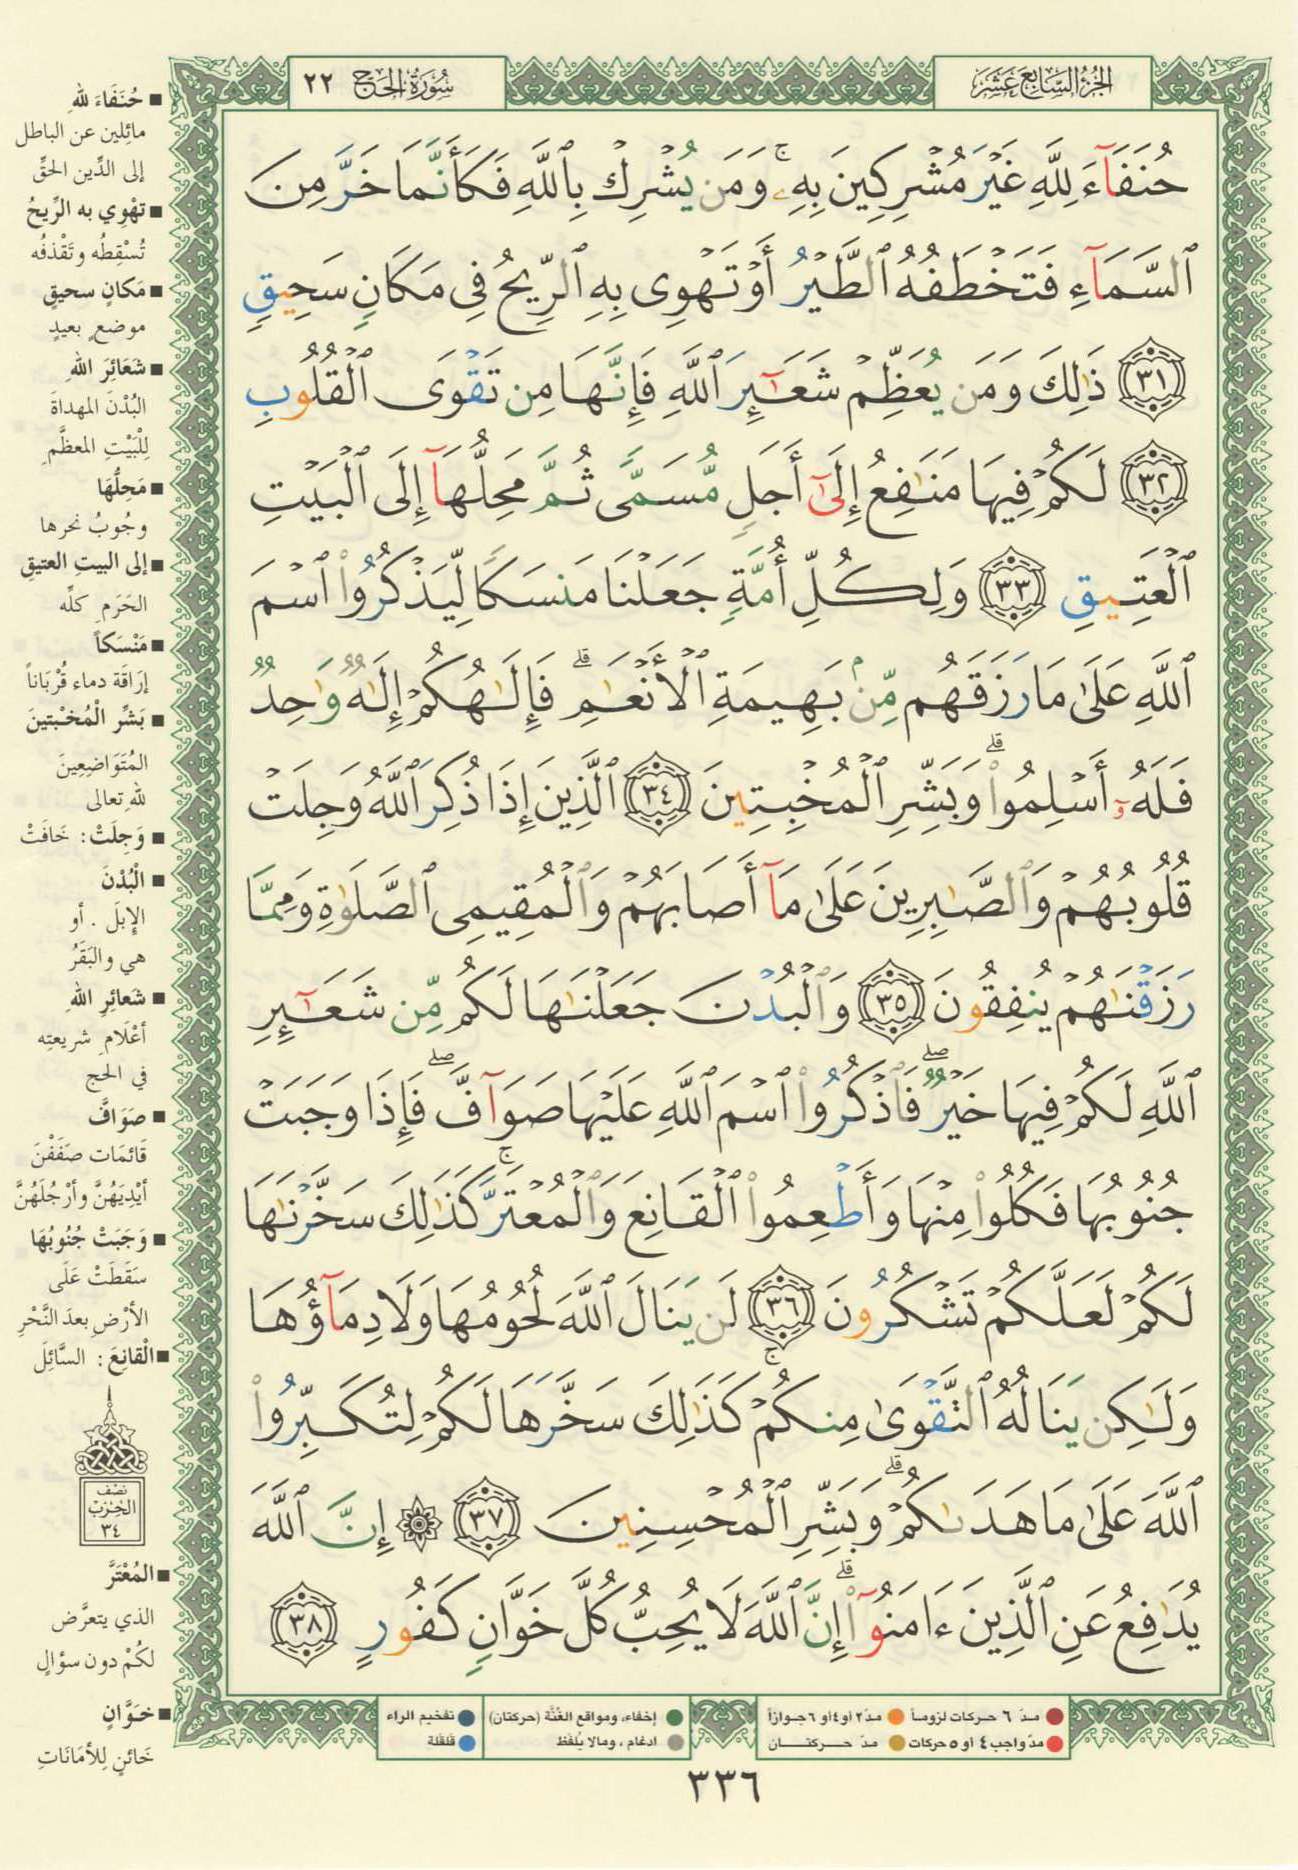 الجزء السابع عشر
سورة الحج ٢٢
حُنَفَآءَ لِلَّهِ غَيْرَ مُشْرِكِينَ بِهِۦ ۚ وَمَن يُشْرِكْ بِٱللَّهِ فَكَأَنَّمَا خَرَّ مِنَ
ٱلسَّمَآءِ فَتَخْطَفُهُ ٱلطَّيْرُ أَوْ تَهْوِى بِهِ ٱلرِّيحُ فِى مَكَانٍ سَحِيقٍ
٣١ ذَٰلِكَ وَمَن يُعَظِّمْ شَعَـٰٓئِرَ ٱللَّهِ فَإِنَّهَا مِن تَقْوَى ٱلْقُلُوبِ
٣٢ لَكُمْ فِيهَا مَنَـٰفِعُ إِلَىٰٓ أَجَلٍ مُّسَمًّى ثُمَّ مَحِلُّهَآ إِلَى ٱلْبَيْتِ
ٱلْعَتِيقِ ٣٣ وَلِكُلِّ أُمَّةٍ جَعَلْنَا مَنسَكًا لِّيَذْكُرُوا۟ ٱسْمَ
ٱللَّهِ عَلَىٰ مَا رَزَقَهُم مِّنۢ بَهِيمَةِ ٱلْأَنْعَـٰمِ ۗ فَإِلَـٰهُكُمْ إِلَـٰهٌ وَٰحِدٌ
فَلَهُۥٓ أَسْلِمُوا۟ ۗ وَبَشِّرِ ٱلْمُخْبِتِينَ ٣٤ ٱلَّذِينَ إِذَا ذُكِرَ ٱللَّهُ وَجِلَتْ
قُلُوبُهُمْ وَٱلصَّـٰبِرِينَ عَلَىٰ مَآ أَصَابَهُمْ وَٱلْمُقِيمِى ٱلصَّلَوٰةِ وَمِمَّا
رَزَقْنَـٰهُمْ يُنفِقُونَ ٣٥ وَٱلْبُدْنَ جَعَلْنَـٰهَا لَكُم مِّن شَعَـٰٓئِرِ
ٱللَّهِ لَكُمْ فِيهَا خَيْرٌ ۖ فَٱذْكُرُوا۟ ٱسْمَ ٱللَّهِ عَلَيْهَا صَوَآفَّ ۖ فَإِذَا وَجَبَتْ
جُنُوبُهَا فَكُلُوا۟ مِنْهَا وَأَطْعِمُوا۟ ٱلْقَانِعَ وَٱلْمُعْتَرَّ ۚ كَذَٰلِكَ سَخَّرْنَـٰهَا
لَكُمْ لَعَلَّكُمْ تَشْكُرُونَ ٣٦ لَن يَنَالَ ٱللَّهَ لُحُومُهَا وَلَا دِمَآؤُهَا
وَلَـٰكِن يَنَالُهُ ٱلتَّقْوَىٰ مِنكُمْ ۚ كَذَٰلِكَ سَخَّرَهَا لَكُمْ لِتُكَبِّرُوا۟
ٱللَّهَ عَلَىٰ مَا هَدَىٰكُمْ ۗ وَبَشِّرِ ٱلْمُحْسِنِينَ ٣٧ ۞ إِنَّ ٱللَّهَ
يُدَٰفِعُ عَنِ ٱلَّذِينَ ءَامَنُوٓا۟ ۗ إِنَّ ٱللَّهَ لَا يُحِبُّ كُلَّ خَوَّانٍ كَفُورٍ ٣٨
■ حُنَفَاءَ للهِ
مائِلين عن الباطل
إلى الدِّين الحقِّ
■ تَهْوِي به الرِّيحُ
تُسْقِطُه وتَقْذفُه
■ مَكانٍ سحيقٍ
موضعٍ بعيدٍ
■ شَعَائِرَ اللهِ
البُدْنَ المهداةَ
لِلْبَيْتِ المعظَّمِ
■ مَحِلُّهَا
وجُوبُ نحرها
■ إلى البيتِ العتيقِ
الحَرَمِ كلِّه
■ مَنْسَكاً
إرَاقَة دماء قُرْبَاناً
■ بَشِّرِ الْمُخْبتينَ
المُتَوَاضِعِينَ
للهِ تعالى
■ وَجِلَتْ: خَافَتْ
■ الْبُدْنَ
الإِبلَ . أو
هي والبَقَرُ
■ شَعائِرِ اللهِ
أعْلَامِ شريعتِه
في الحج
■ صَوَافَّ
قَائمَات صَفَفْنَ
أيْدِيَهُنَّ وأرْجُلَهُنَّ
■ وَجَبَتْ جُنُوبُهَا
سَقَطَتْ عَلَى
الأرْضِ بعدَ النَّحْرِ
■ الْقانِعَ: السَّائِلَ
نصف
الحزب
٣٤
■ المُعْتَرَّ
الذي يتعرَّض
لكُمْ دون سؤالٍ
■ خَوَّانٍ
خَائنٍ لِلأمَانَاتِ
مدّ ٦ حركات لزوماً ● مدّ ٢ أو ٤ أو ٦ جوازاً
مدّ واجب ٤ أو ٥ حركات ● مدّ حركتان
إخفاء، ومواقع الغُنَّة (حركتان)
ادغام، ومالا يُلفَظ
تفخيم الراء
قلقلة
٣٣٦